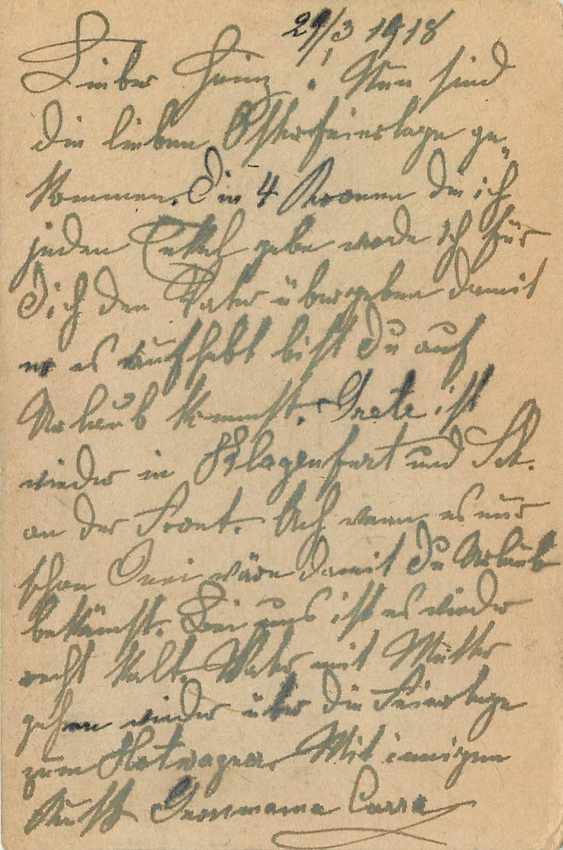 29/3 1918
Lieber Heinz! Nun sind
die lieben Osterfeiertage ge-
kommen. Die 4 Kronen die ich
jeden Enkel gebe werde ich für
Dich den Vater übergeben damit
er es aufhebt bist Du auf
Urlaub kommst. Grete ist
wieder in Klagenfurt und
an der Front. Ach wenn es nur
schon wäre damit Du Urlaub
bekämst. Bei uns ist es wieder
recht kalt. Vater mit Mutter
gehen wieder über die Feiertage
zum. Mit innigen
Kuß Grossmama